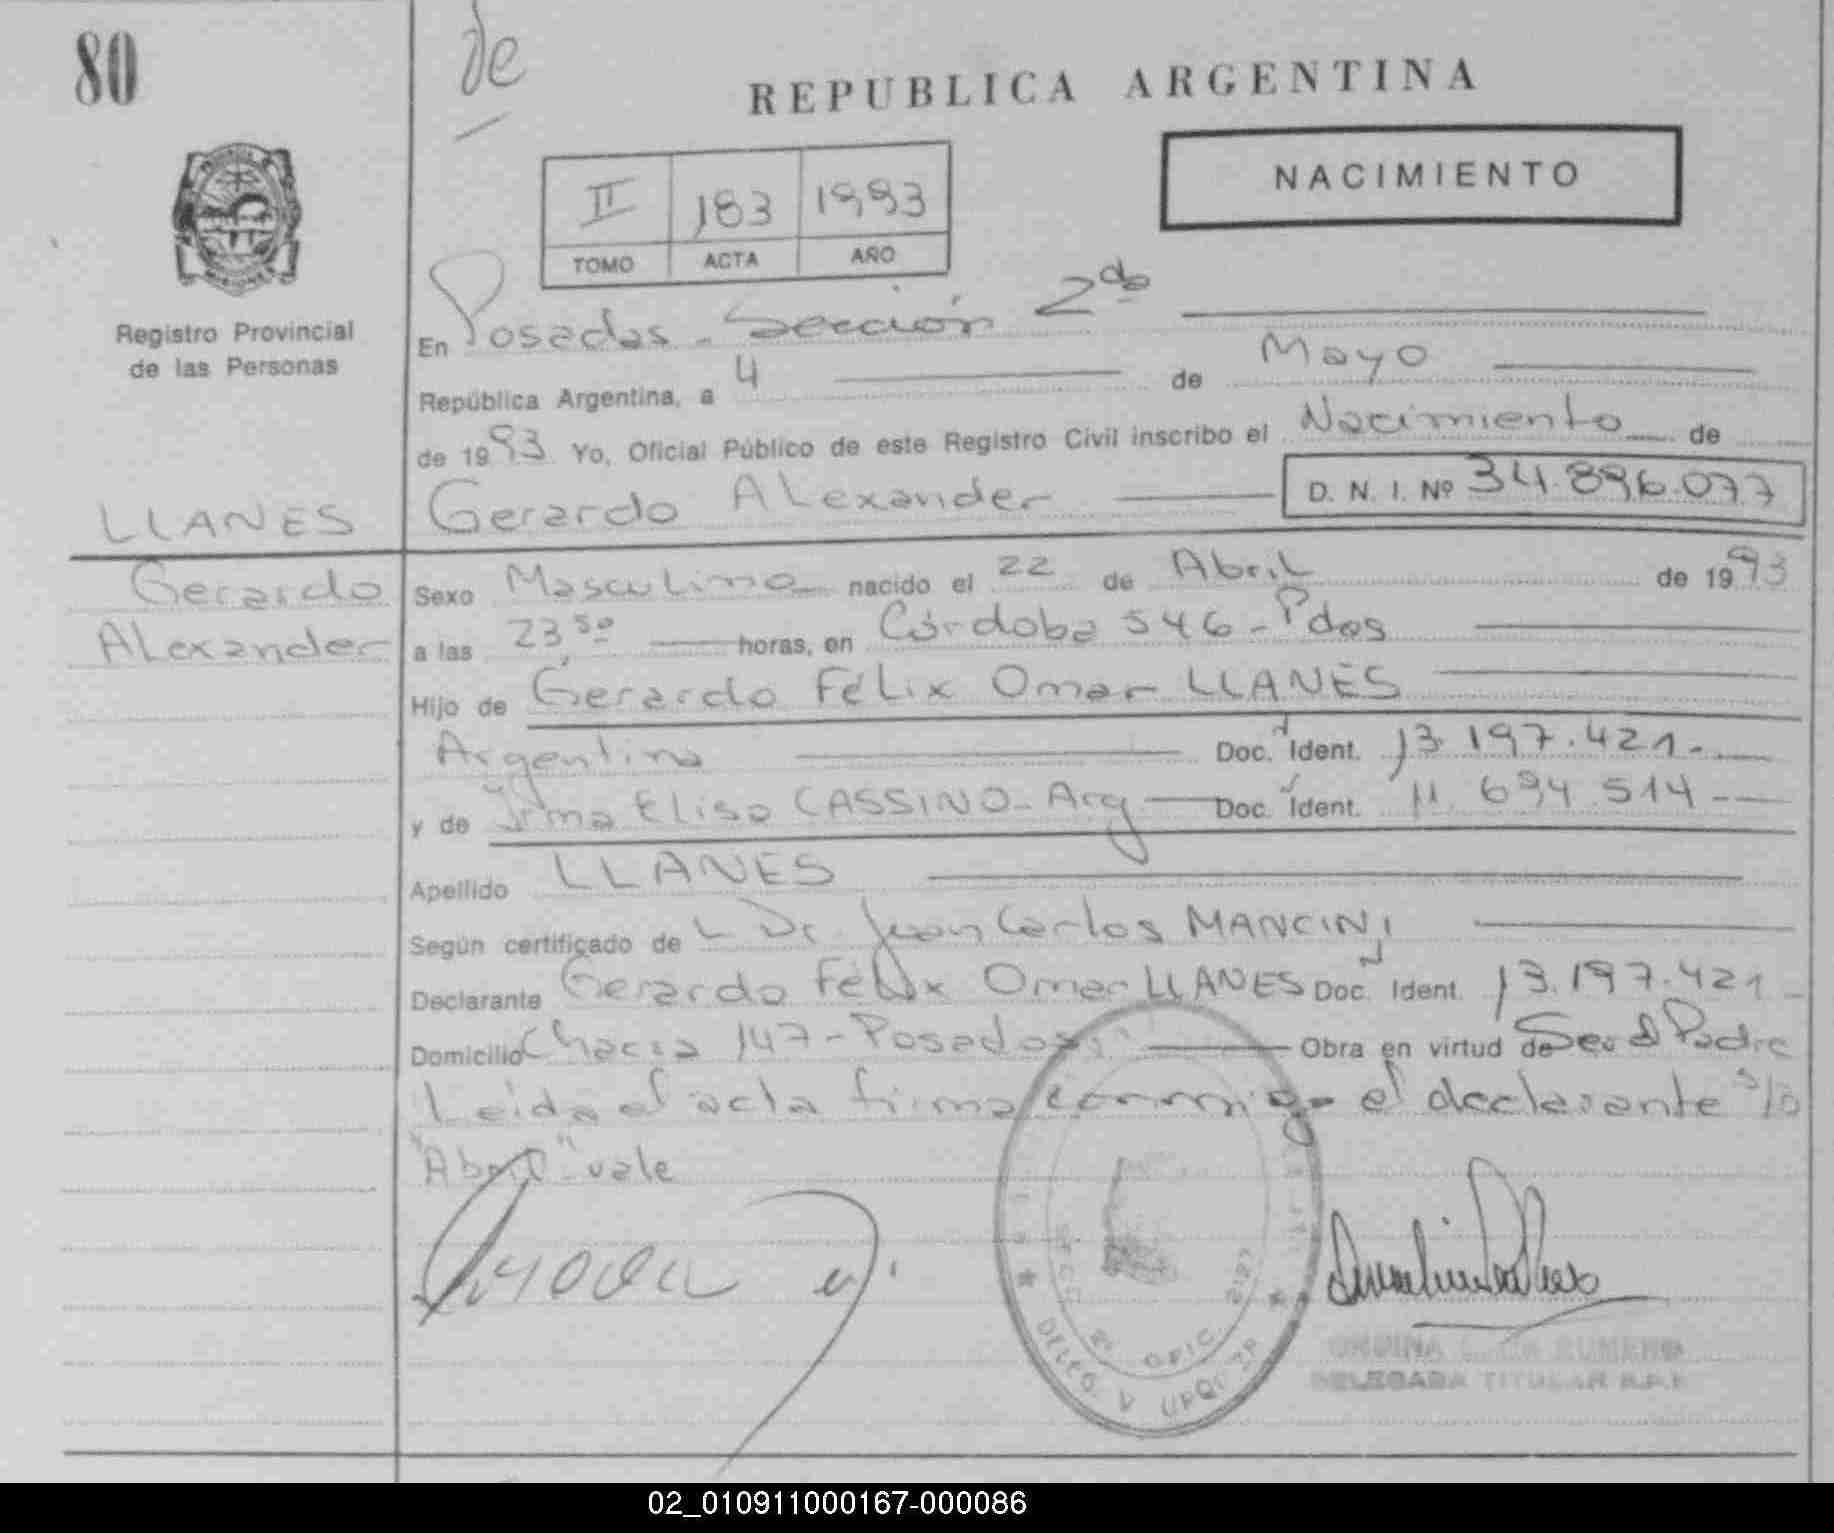 80
de
REPUBLICA ARGENTINA
NACIMIENTO
II 183 1993
TOMO ACTA AÑO
Registro Provincial
de las Personas
En Posadas - Sección 2da
República Argentina, a 4 de Mayo
de 1993 Yo, Oficial Público de este Registro Civil inscribo el Nacimiento de
Gerardo Alexander D. N. I. Nº 34.896.077
LLANES
Gerardo
Alexander
Sexo Masculino nacido el 22 de Abril de 1993
a las 23 50 horas, en Córdoba 546 - Pdas
Hijo de Gerardo Félix Omar LLANES
Argentina Doc. Ident. 13.197.421.-
y de Irma Elisa CASSINO - Arg Doc. Ident. 11.694.514 -
Apellido LLANES
Según certificado de Dr. Juan Carlos MANCINI
Declarante Gerardo Félix Omar LLANES Doc. Ident. 13.197.421 -
Domicilio Chacra 147 - Posadas Obra en virtud de Ser el Padre
Leída el acta firma conmigo el declarante S/b
"Abril" vale
DELEG.
OFIC.
DELEGADA TITULAR R.P.P.
02_010911000167-000086